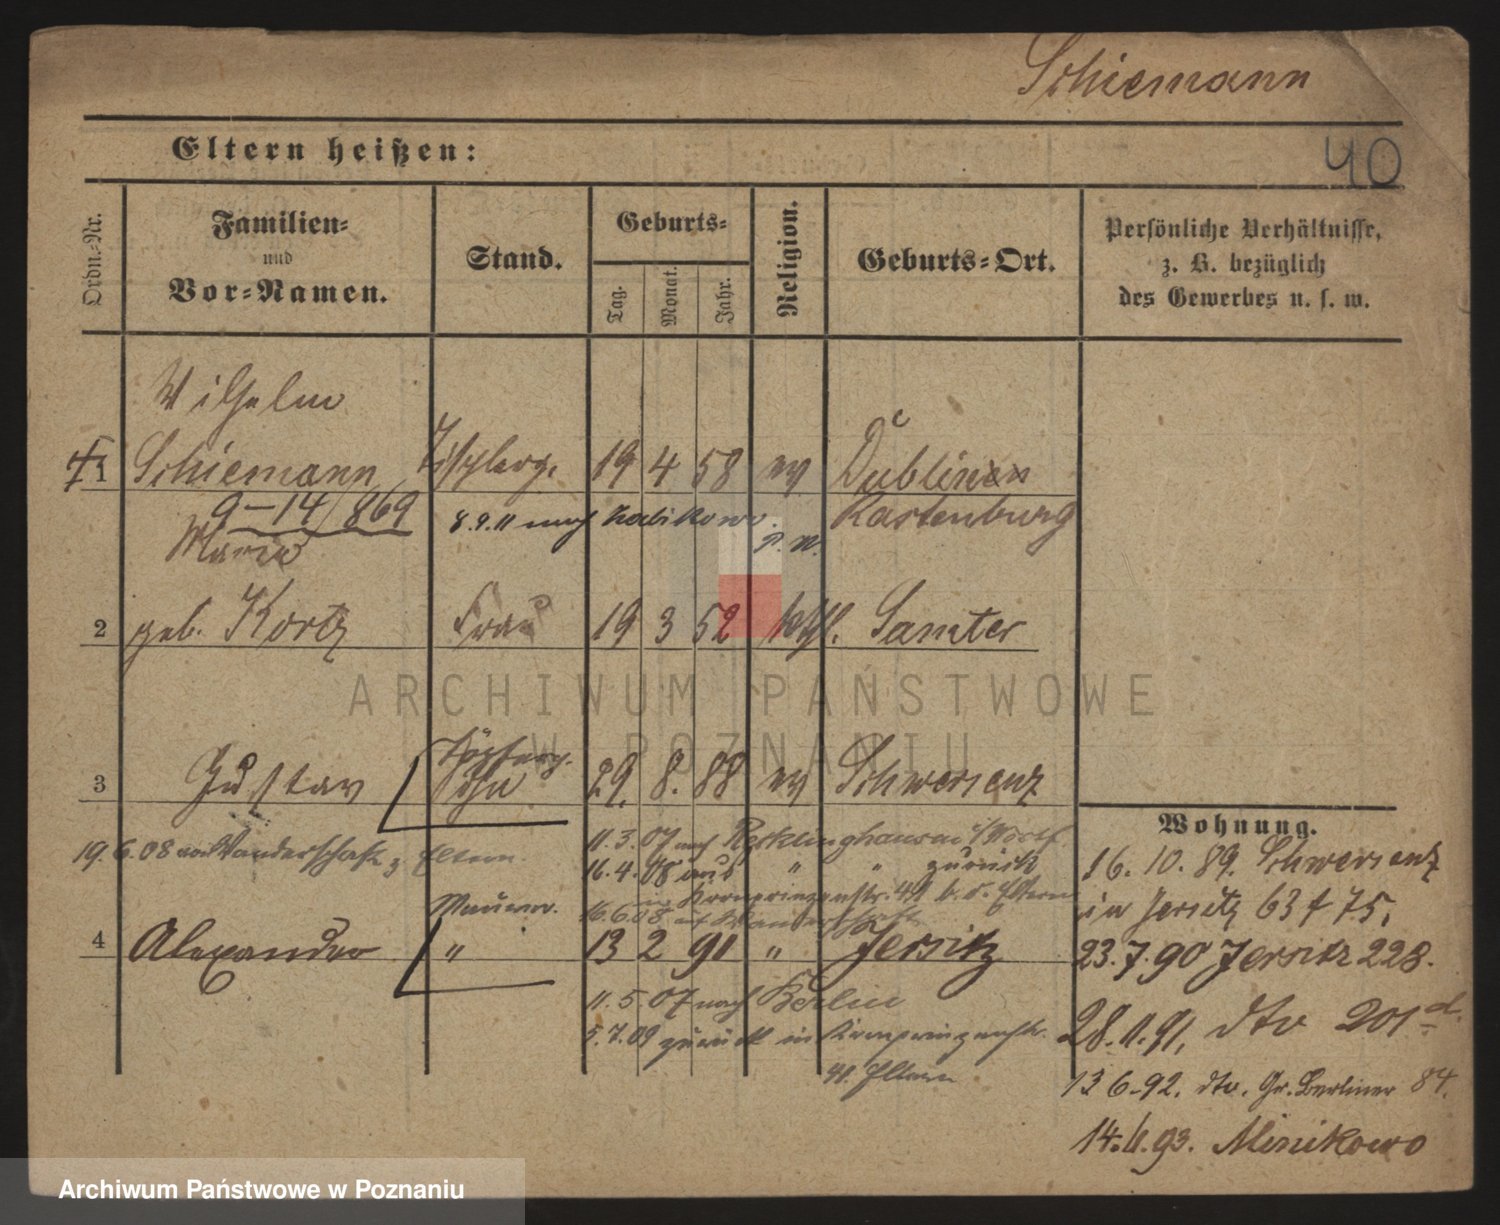 Schiemann
40
Eltern heißen:
Ordn.-Nr.
Familien-
und
Vor-Namen.
Stand.
Geburts-
Tag.
Monat.
Jahr.
Religion.
Geburts-Ort.
Persönliche Verhältnisse,
z. B. bezüglich
des Gewerbes u. s. w.
Wilhelm
1 Schiemann 19 4 58 ev Dublinen
9-14/869 8.9.11 nach Rastenburg
Maria
2 geb. Frau 19 3 52 kath. Samter
ARCHIWUM PAŃSTWOWE
W POZNANIU
3 Gustav Sohn 29. 8. 88 ev Schwersenz
Wohnung.
19.6.08 von Wanderschaft z. Eltern
11.3.07 nach Recklinghausen i/Westf
16.4.08 aus " " zurück
in Kronprinzenstr. 41 b. d. Eltern
16.6.08 auf Wanderschaft
Maurer.
4 Alexander " 13 2 91 " Jersitz
11.5.07 nach Berlin
5.7.09 zurück in Kronprinzenstr.
41. Eltern
16. 10. 89. Schwersenz
in Jersitz 63 f 75,
23.7.90 Jersitz 228.
28.11.91, dto 201d.
13 6-92. dto. Gr. Berliner 84.
14.6.93. Minikowo
Archiwum Państwowe w Poznaniu